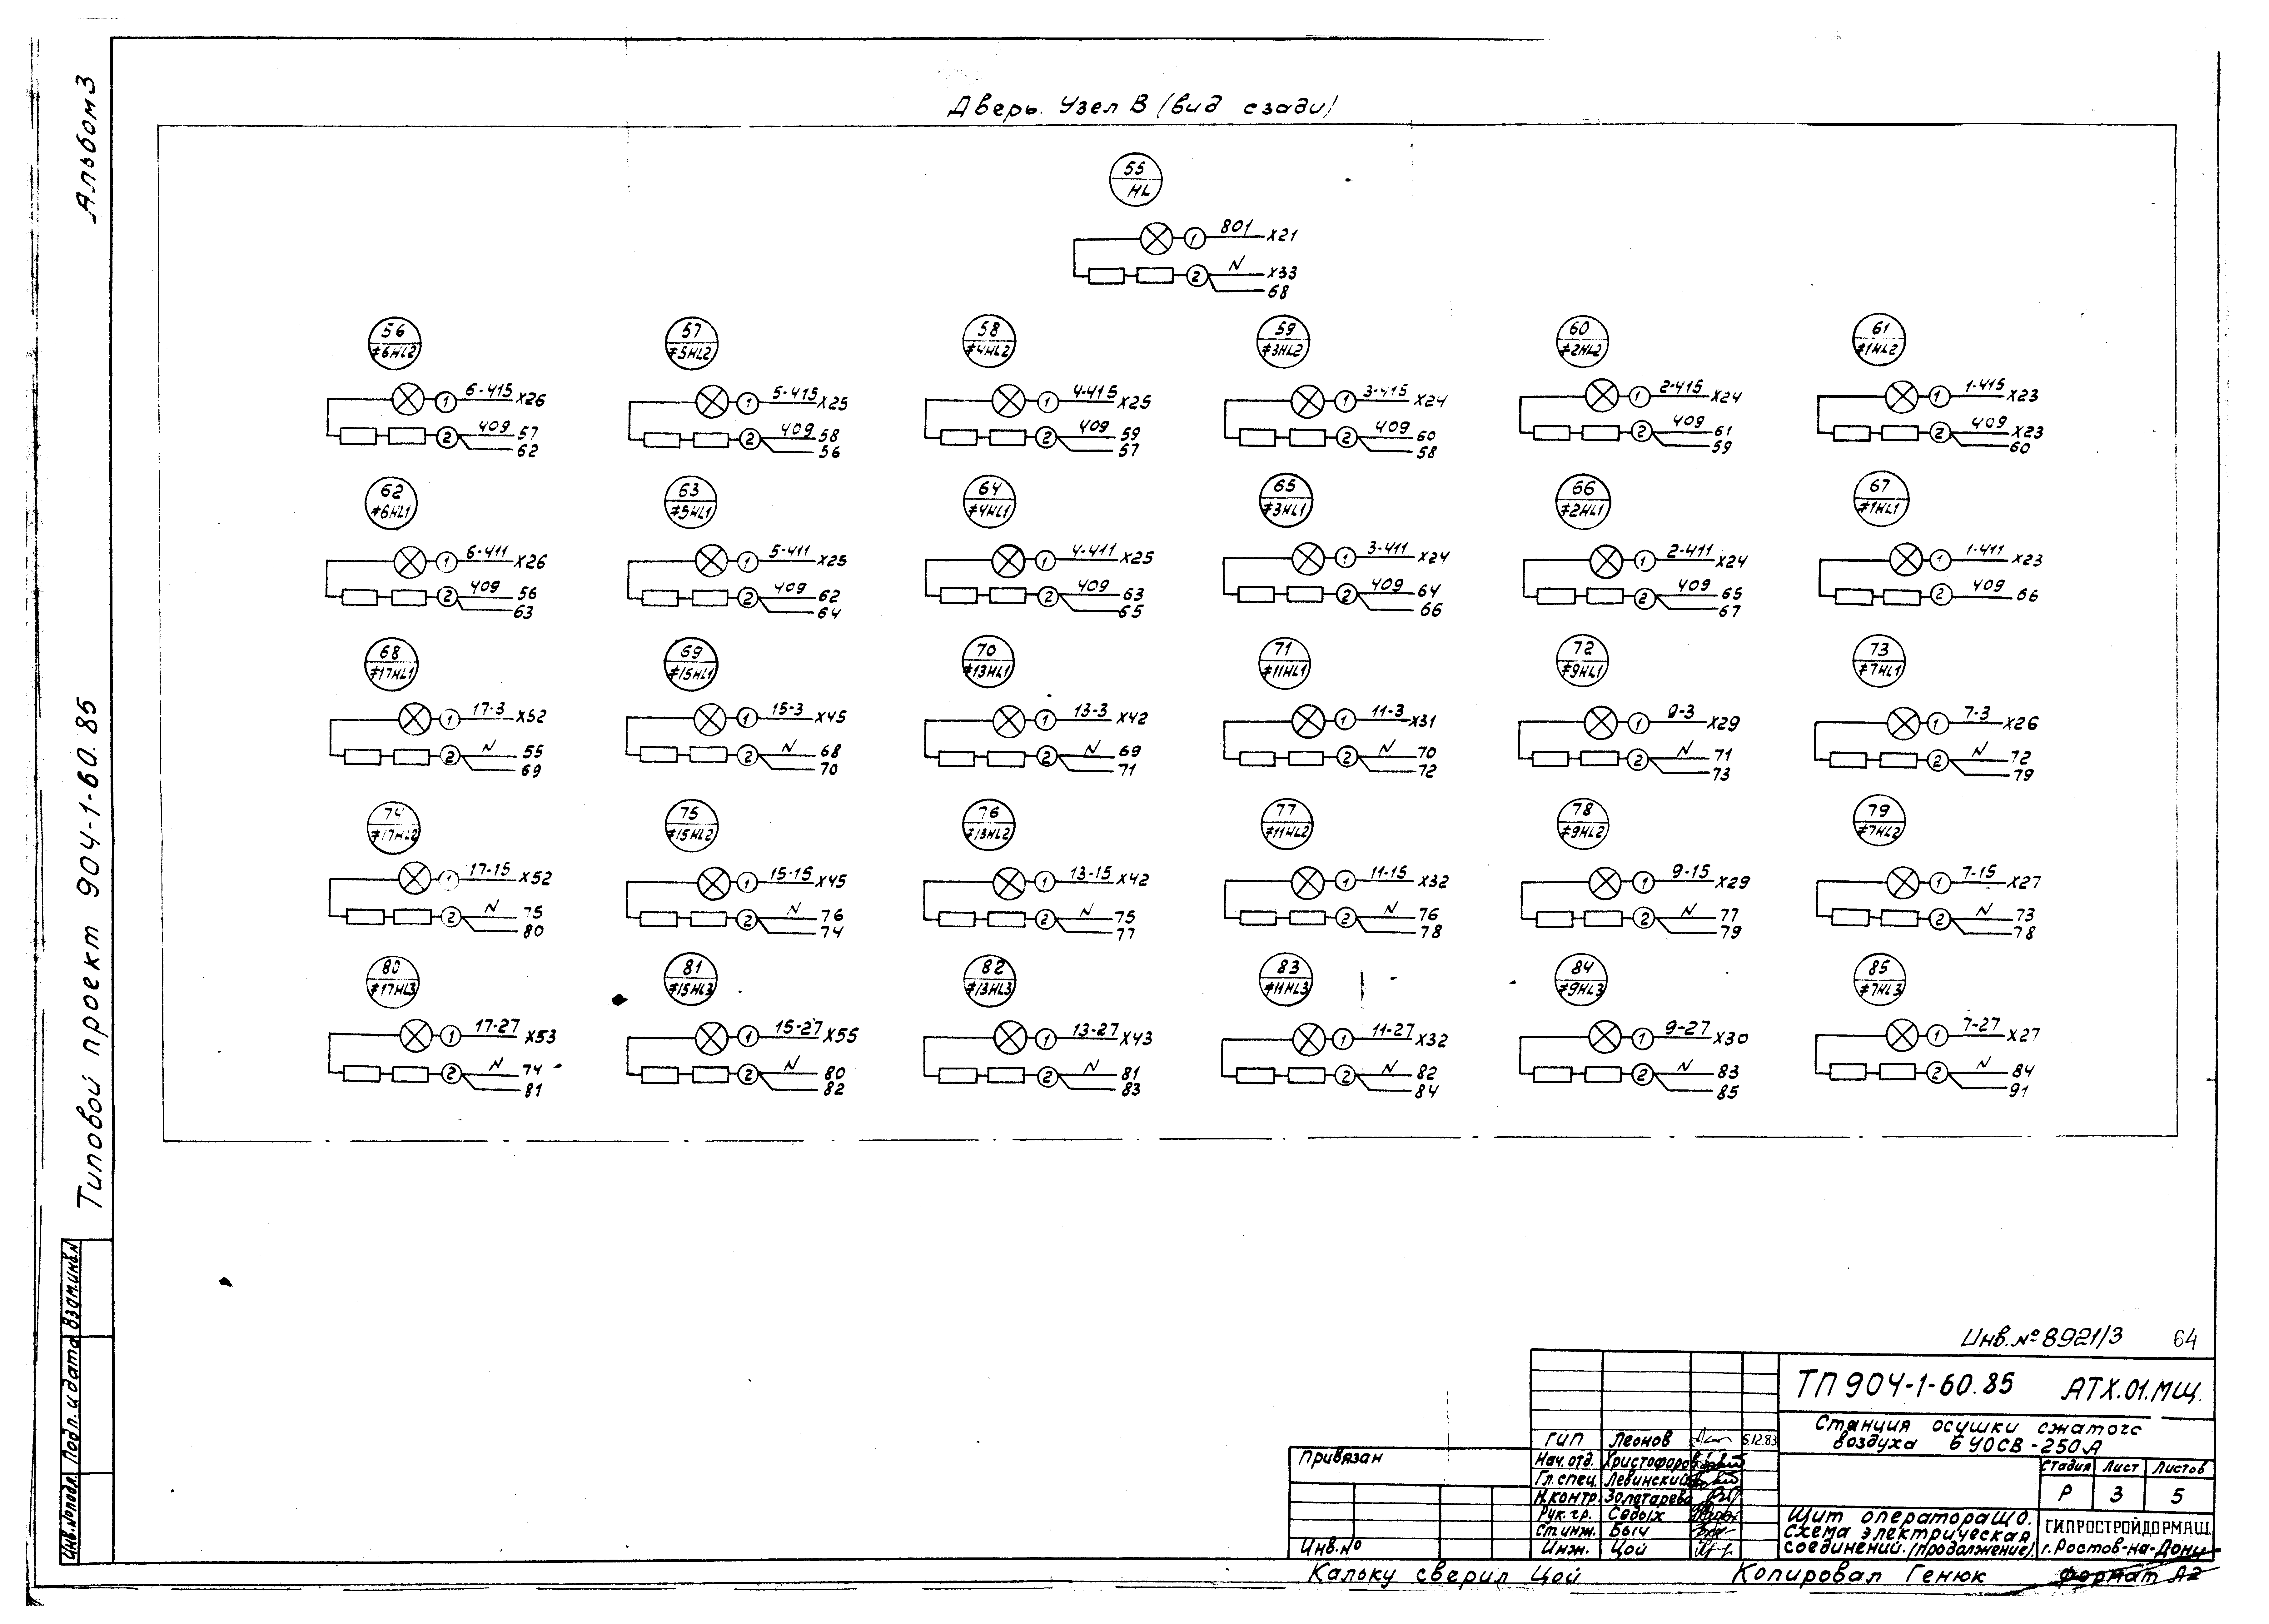 Альбом 3
Типовой проект 904-1-60.85
Взам.инв.№
Подп. и дата
Инв.№подл.
Дверь. Узел В (вид сзади)
55
HL
1 801 Х21
2 N Х33
68
56 57 58 59 60 61
≠6HL2 ≠5HL2 ≠4HL2 ≠3HL2 ≠2HL2 ≠1HL2
1 6-415 Х26 1 5-415 Х25 1 4-415 Х25 1 3-415 Х24 1 2-415 Х24 1 1-415 Х23
2 409 57 2 409 58 2 409 59 2 409 60 2 409 61 2 409 Х23
62 56 57 58 59 60
62 63 64 65 66 67
≠6HL1 ≠5HL1 ≠4HL1 ≠3HL1 ≠2HL1 ≠1HL1
1 6-411 Х26 1 5-411 Х25 1 4-411 Х25 1 3-411 Х24 1 2-411 Х24 1 1-411 Х23
2 409 56 2 409 62 2 409 63 2 409 64 2 409 65 2 409 66
63 64 65 66 67
68 69 70 71 72 73
≠17HL1 ≠15HL1 ≠13HL1 ≠11HL1 ≠9HL1 ≠7HL1
1 17-3 Х52 1 15-3 Х45 1 13-3 Х42 1 11-3 Х31 1 9-3 Х29 1 7-3 Х26
2 N 55 2 N 68 2 N 69 2 N 70 2 N 71 2 N 72
69 70 71 72 73 79
74 75 76 77 78 79
≠17HL2 ≠15HL2 ≠13HL2 ≠11HL2 ≠9HL2 ≠7HL2
1 17-15 Х52 1 15-15 Х45 1 13-15 Х42 1 11-15 Х32 1 9-15 Х29 1 7-15 Х27
2 N 75 2 N 76 2 N 75 2 N 76 2 N 77 2 N 73
80 74 77 78 79 78
80 81 82 83 84 85
≠17HL3 ≠15HL3 ≠13HL3 ≠11HL3 ≠9HL3 ≠7HL3
1 17-27 Х53 1 15-27 Х55 1 13-27 Х43 1 11-27 Х32 1 9-27 Х30 1 7-27 Х27
2 N 74 2 N 80 2 N 81 2 N 82 2 N 83 2 N 84
81 82 83 84 85 91
Инв.№8921/3 64
ТП 904-1-60.85 АТХ.01.МЩ.
Станция осушки сжатого
воздуха 6УОСВ-250А
Привязан
Инв.№
ГИП Леонов 5.12.83
Нач.отд. Христофоров
Гл.спец. Левинский
Н.контр. Золотарева
Рук.гр. Седых
Ст.инж. Быч
Инж. Цой
Стадия Лист Листов
Р 3 5
Щит оператора ЩО.
Схема электрическая
соединений.(продолжение).
ГИПРОСТРОЙДОРМАШ
г.Ростов-на-Дону
Кальку сверил Цой Копировал Генюк Формат А2